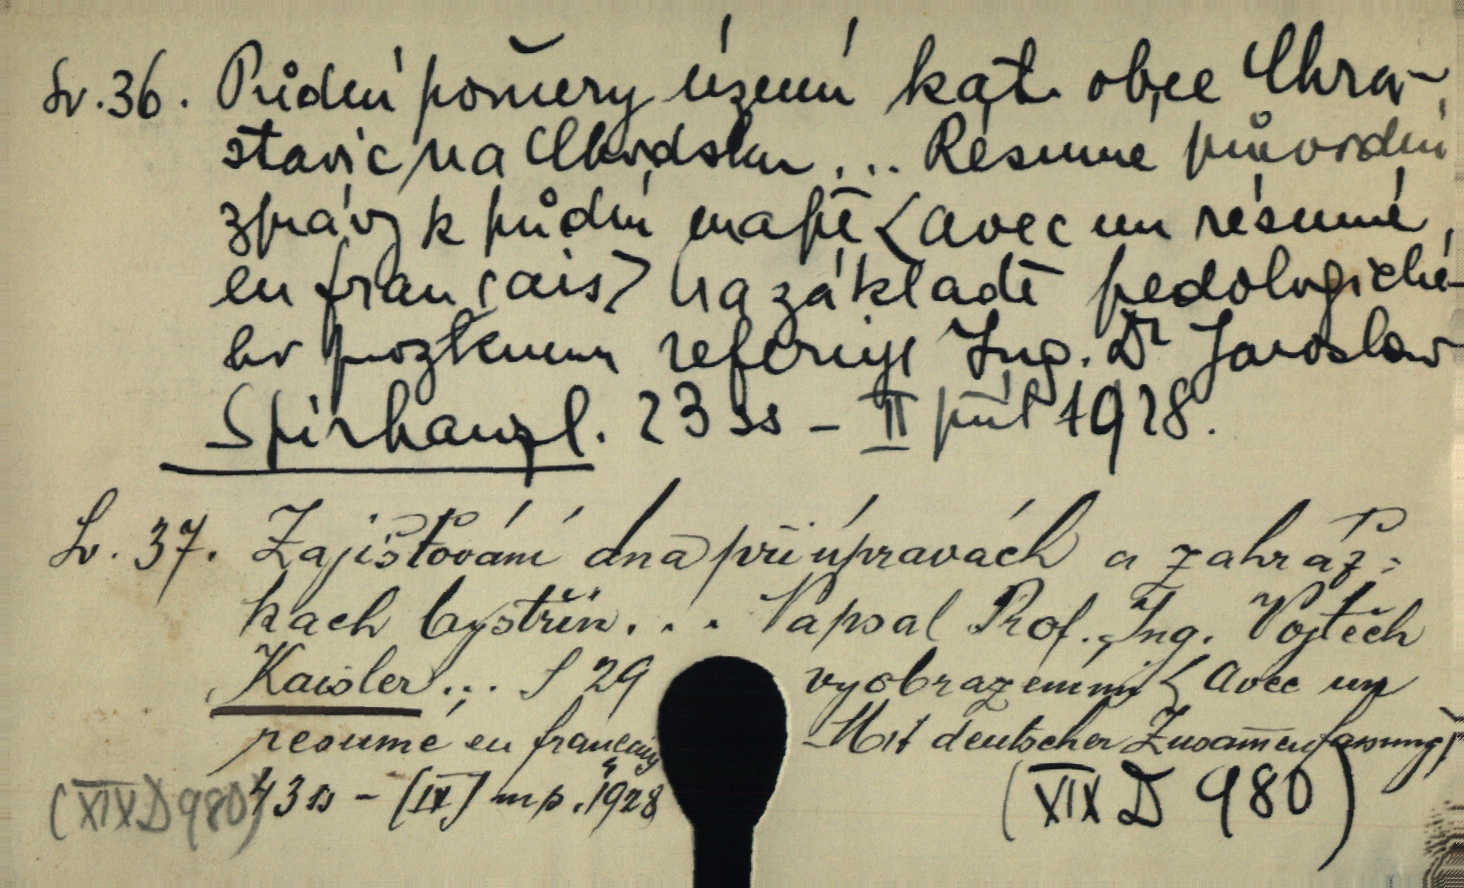 Sv. 36. Půdní poměry území kat. obce Chra-
stavic na Chodsku ... Résumé původní
zprávy k půdní mapě <avec un résumé
en français> Na základě pedologické-
ho průzkumu referuje Ing. Dr Jaroslav
Spirhanzl. 23 ss - II půl 1928.
Sv. 37. Zajišťování dna při úpravách a zahráz=
kách bystřin... Napsal Prof. Ing. Vojtěch
Kaisler... S 29 vyobrazeními < Avec un
resumé en français - Mit deutscher Zusam̄enfassung>
43 ss - [IX] m p. 1928
(XIX D 980) (XIX D 980)